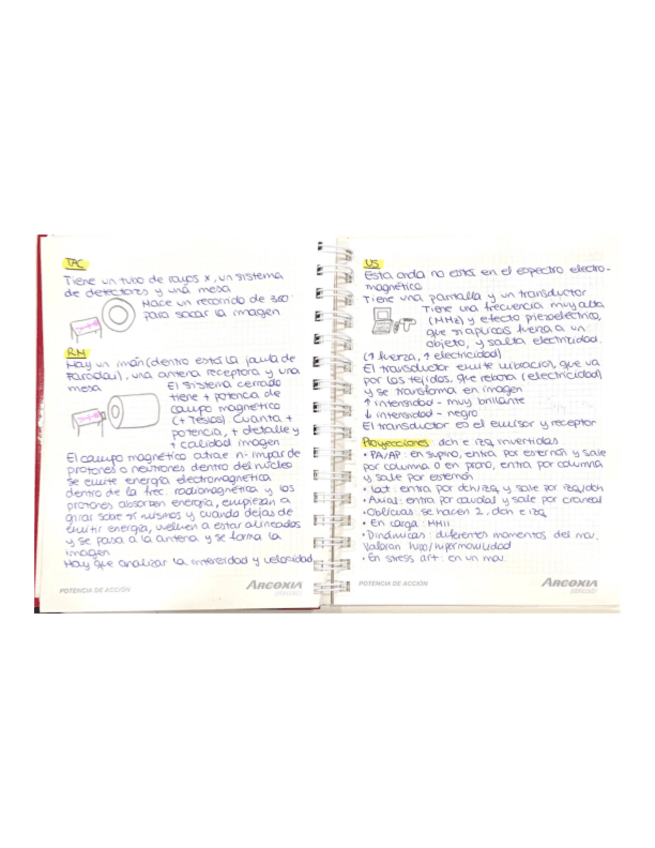 TAC
Tiene un tubo de rayos x, un sistema
de detectores y una mesa
Hace un recorrido de 360°
para sacar la imagen
RM
Hay un imán (dentro está la jaula de
Faraday), una antena receptora y una
mesa
El sistema cerrado
tiene + potencia de
campo magnético
(+ Teslas). Cuanta +
potencia, + detalle y
+ calidad imagen
El campo magnético atrae nº impar de
protones o neutrones dentro del núcleo
se emite energía electromagnética
dentro de la frec. radiomagnética y los
protones absorben energía, empiezan a
girar sobre sí mismos y cuando dejas de
emitir energía, vuelven a estar alineados
y se pasa a la antena y se forma la
imagen
Hay que analizar la intensidad y velocidad
POTENCIA DE ACCIÓN
ARCOXIA
US
Esta onda no está en el espectro electro-
magnético
Tiene una pantalla y un transductor
Tiene una frecuencia muy alta
(MHz) y efecto piezoeléctrico,
que si aplicas fuerza a un
objeto, y salta electricidad.
(↑ fuerza, ↑ electricidad)
El transductor emite vibración, que va
por los tejidos, que rebota (electricidad)
y se transforma en imagen
↑ intensidad - muy brillante
↓ intensidad - negro
El transductor es el emisor y receptor
Proyecciones dch e izq invertidas
• PA/AP: en supino, entra por esternón y sale
por columna o en prono, entra por columna
y sale por esternón
• Lat: entra por dch/izq y sale por izq/dch
• Axial: entra por caudal y sale por craneal
• Oblicuas: se hacen 2, dch e izq
• En carga: MMII
• Dinámicas: diferentes momentos del mov.
Valoran hipo/hipermovilidad
• En stress art: en un mov.
POTENCIA DE ACCIÓN
ARCOXIA